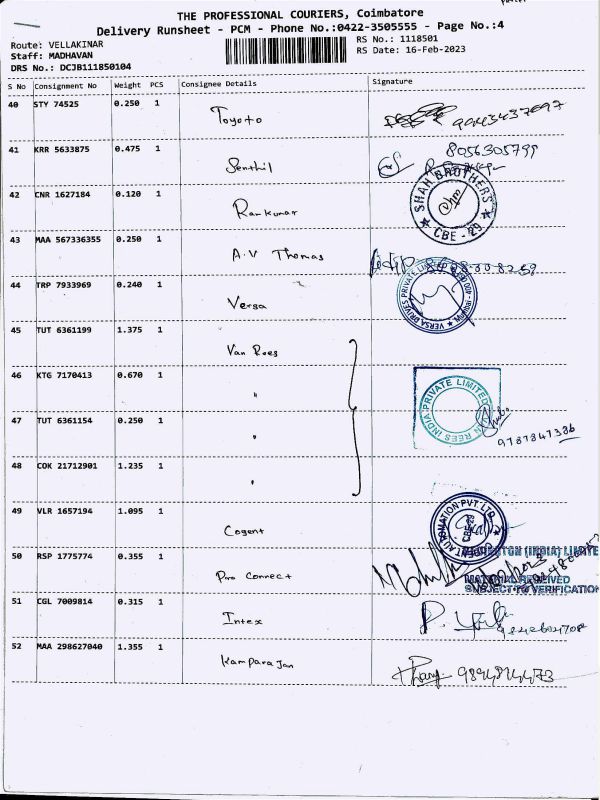 THE PROFESSIONAL COURIERS, Coimbatore
Delivery Runsheet - PCM - Phone No.:0422-3505555 - Page No.:4
Route: VELLAKINAR
RS No.: 1118501
Staff: MADHAVAN
RS Date: 16-Feb-2023
DRS No.: DCJB111850104
S No Consignment No Weight PCS Consignee Details Signature
40 STY 74525 0.250 1 Toyoto
41 KRR 5633875 0.475 1 Senthil 8056305799
42 CNR 1627184 0.120 1 Ramkumar SHAH BROTHERS CBE - 29
43 MAA 567336355 0.250 1 A.V Thomas
44 TRP 7933969 0.240 1 Versa VERSA DRIVES PRIVATE LIMITED
45 TUT 6361199 1.375 1 Van Rees
46 KTG 7170413 0.670 1 "
47 TUT 6361154 0.250 1 " REES INDIA PRIVATE LIMITED
9787847386
48 COK 21712901 1.235 1 "
49 VLR 1657194 1.095 1 Cogent AUTOMATION PVT. LTD. CBE-29
50 RSP 1775774 0.355 1 Pro Connect (INDIA) LIMITE
MATERIAL RECEIVED
SUBJECT TO VERIFICATION
51 CGL 7009814 0.315 1 Intex
52 MAA 298627040 1.355 1 Kamparajan 9894814473